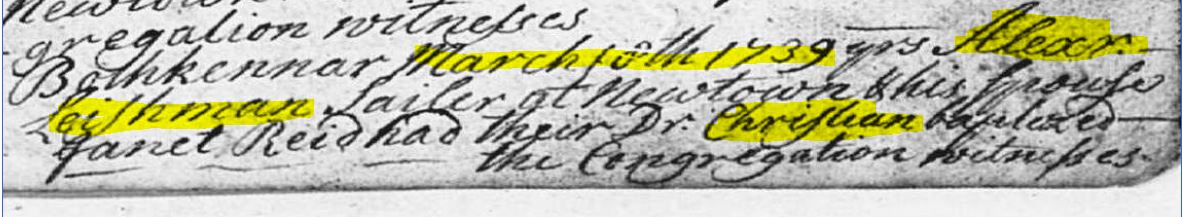 Newtown
gregation witnesses
Bothkennar March 18th 1739 yrs Alexr
Leishman Sailer at Newtown & his Spouse
Janet Reid had their Dr. Christian baptized
the Congregation witnesses